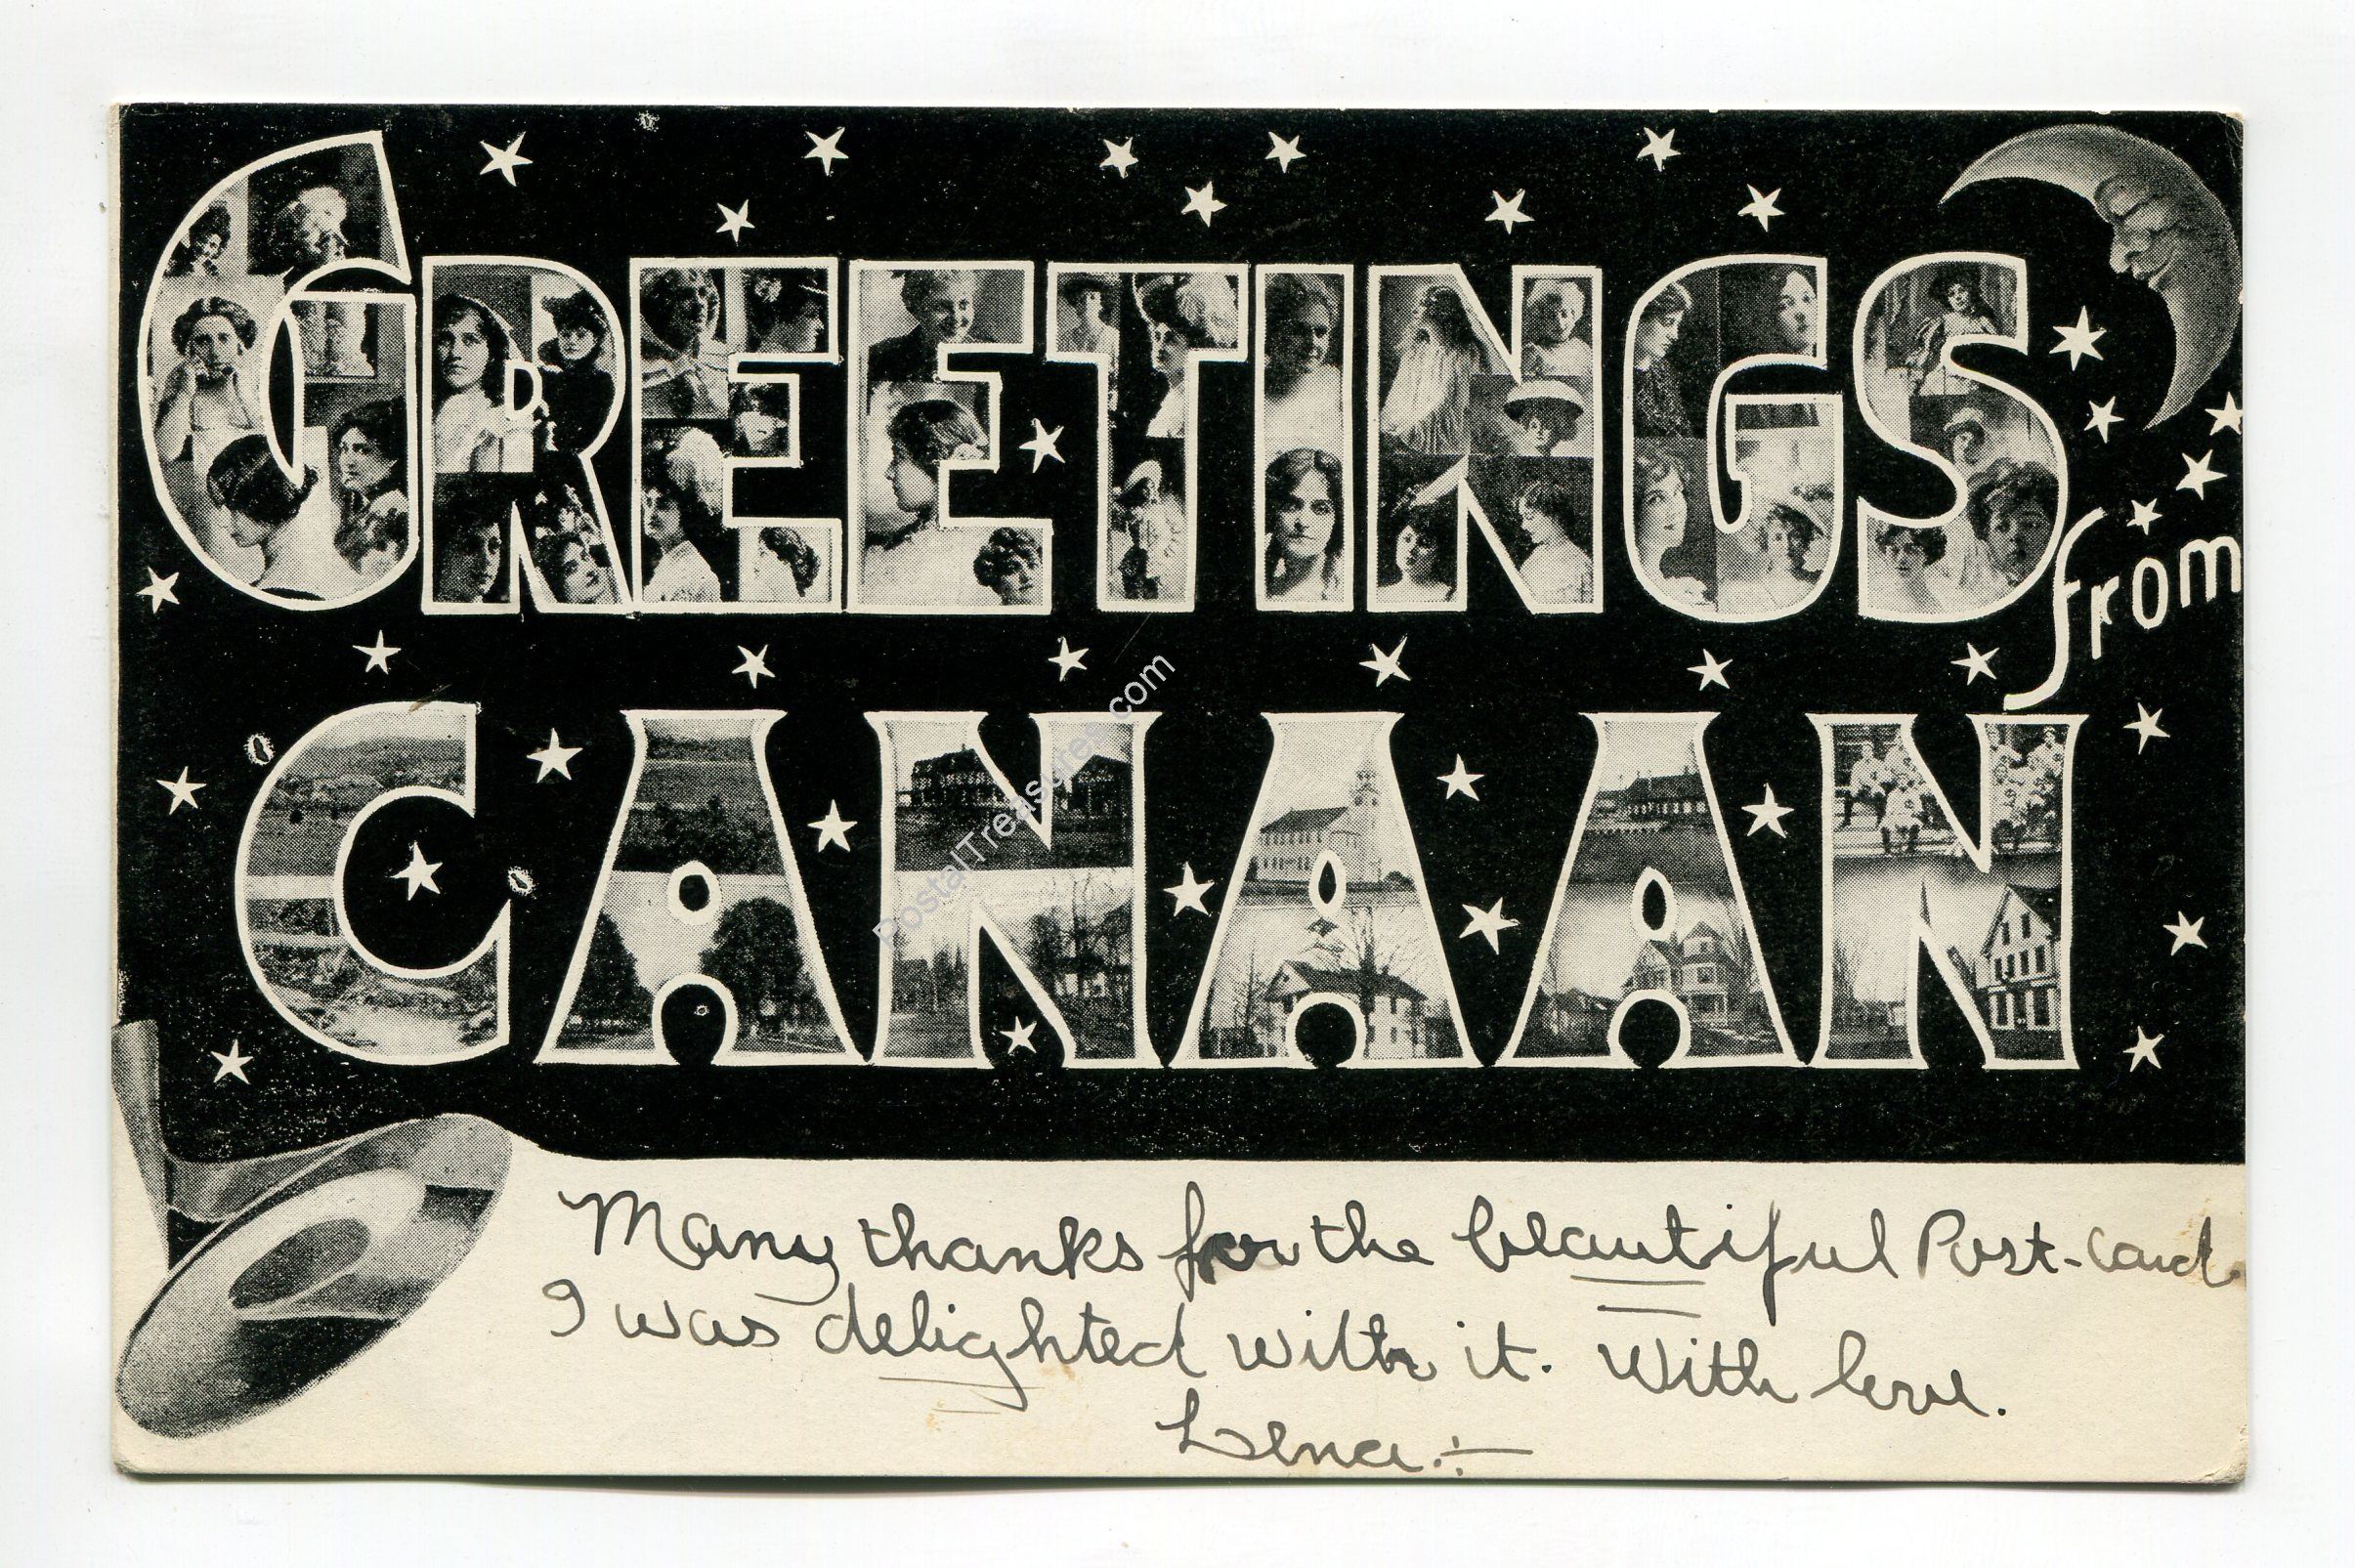 GREETINGS
from
CANAAN
PostalTreasures.com
Many thanks for the beautiful Post-card
I was delighted with it. With love.
Lena